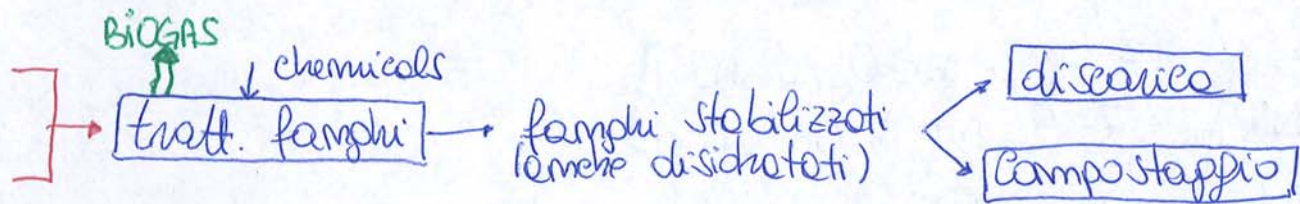 BIOGAS
chemicals
tratt. fanghi
fanghi stabilizzati
(anche disidratati)
discarica
Compostaggio